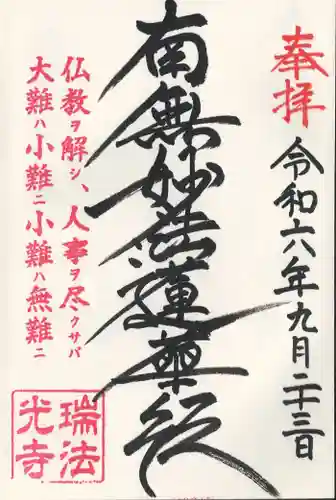 奉拝
令和六年九月二十三日
南無妙法蓮華経
仏教ヲ解シ、人事ヲ尽クサバ
大難ハ小難ニ小難ハ無難ニ
瑞法
光寺